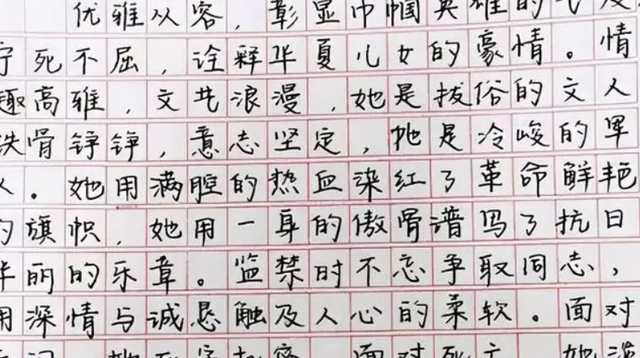 优雅从容，彰显巾帼英雄的
死不屈，诠释华夏儿女的豪情。情
趣高雅，文艺浪漫，她是拔俗的文人
铁骨铮铮，意志坚定，她是冷峻的军
人。她用满腔的热血染红了革命鲜艳
的旗帜，她用一身的傲骨谱写了抗日
华丽的乐章。监禁时不忘争取同志，
用深情与诚恳触及人心的柔软。面对
面对死亡，她